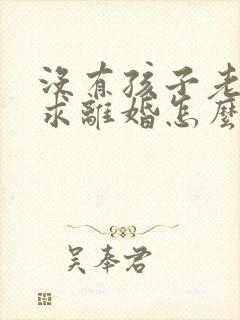 没有孩子老
求離婚怎麼
吴奉君